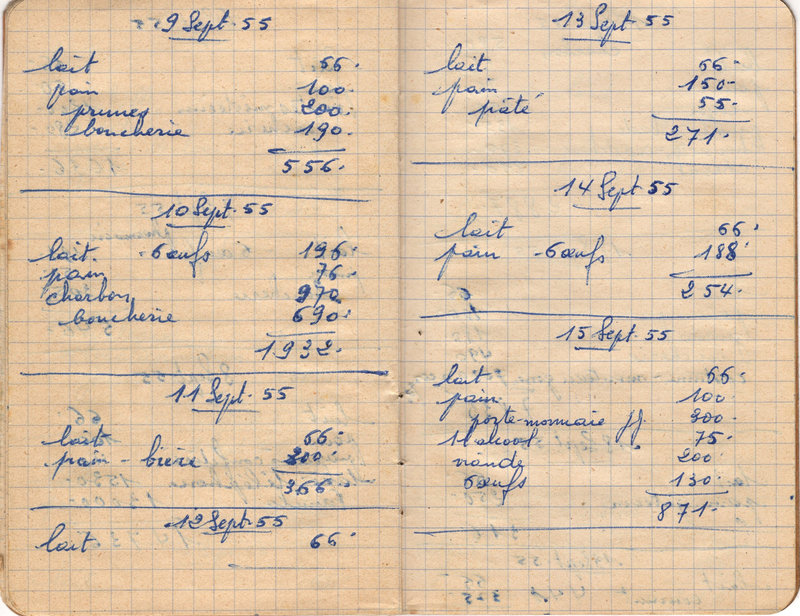 9 Sept. 55
lait 66.
pain 100.
prunes 200.
boucherie 190.
556.
10 Sept. 55
lait. - 6 œufs 196.
pain 76.
charbon 970
boucherie 690.
1932.
11 Sept. 55
lait 66.
pain - bière 300.
366.
12 Sept. 55
lait 66.
13 Sept. 55
lait 66.
pain 150.
pâté 55.
271.
14 Sept 55
lait 66.
pain - 6 œufs 188.
254.
15 Sept. 55
lait 66.
pain. 100.
porte-monnaie JJ. 300.
1 l alcool 75.
viande 200.
6 œufs 130.
871.